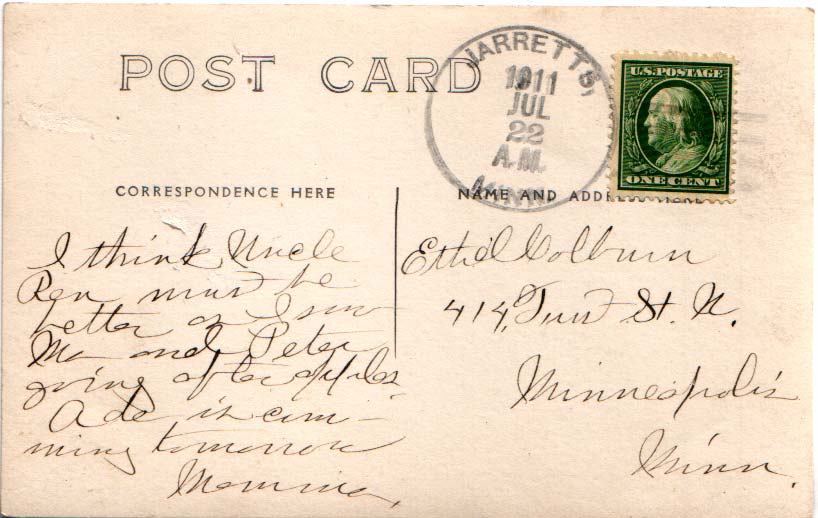 POST CARD
JARRETTS,
1911
JUL
22
A.M.
MINN.
U.S. POSTAGE
ONE CENT
CORRESPONDENCE HERE
NAME AND ADDRESS HERE
I think Uncle
must be
better as I saw
Ma and Peter
going after apples
Ade is com-
ming tomorrow
Mamma.
Ethel Colburn
414, St. N.
Minneapolis
Minn.